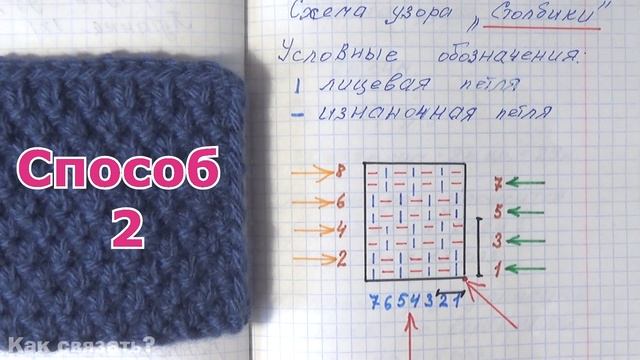 Схема узора „Столбики"
Условные обозначения:
| лицевая петля
– изнаночная петля
Способ
2
8
6
4
2
7
5
3
1
7 6 5 4 3 2 1
Как связать?